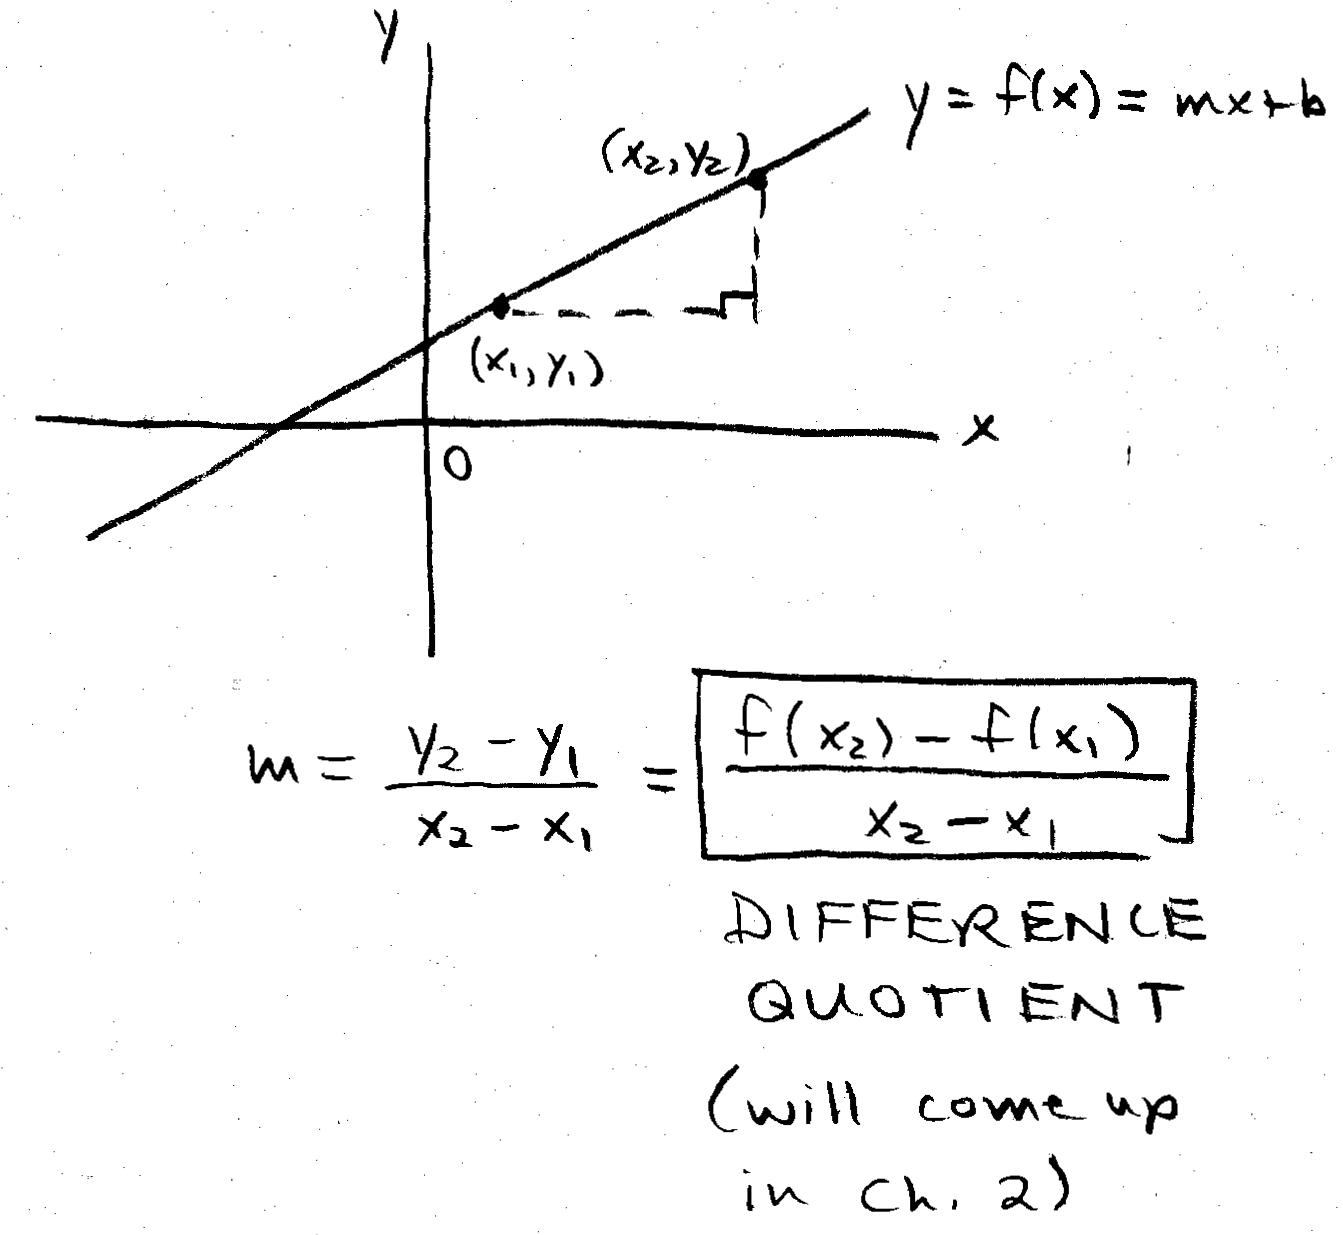 y
y = f(x) = mx+b
(x₂, y₂)
(x₁, y₁)
x
0
m = (y₂ - y₁)/(x₂ - x₁) = (f(x₂) - f(x₁))/(x₂ - x₁)
DIFFERENCE
QUOTIENT
(will come up
in Ch. 2)